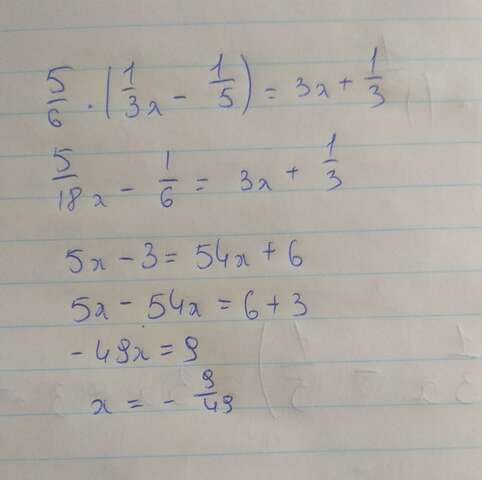 5/6 · (1/3x - 1/5) = 3x + 1/3
5/18x - 1/6 = 3x + 1/3
5x - 3 = 54x + 6
5x - 54x = 6 + 3
-49x = 9
x = - 9/49